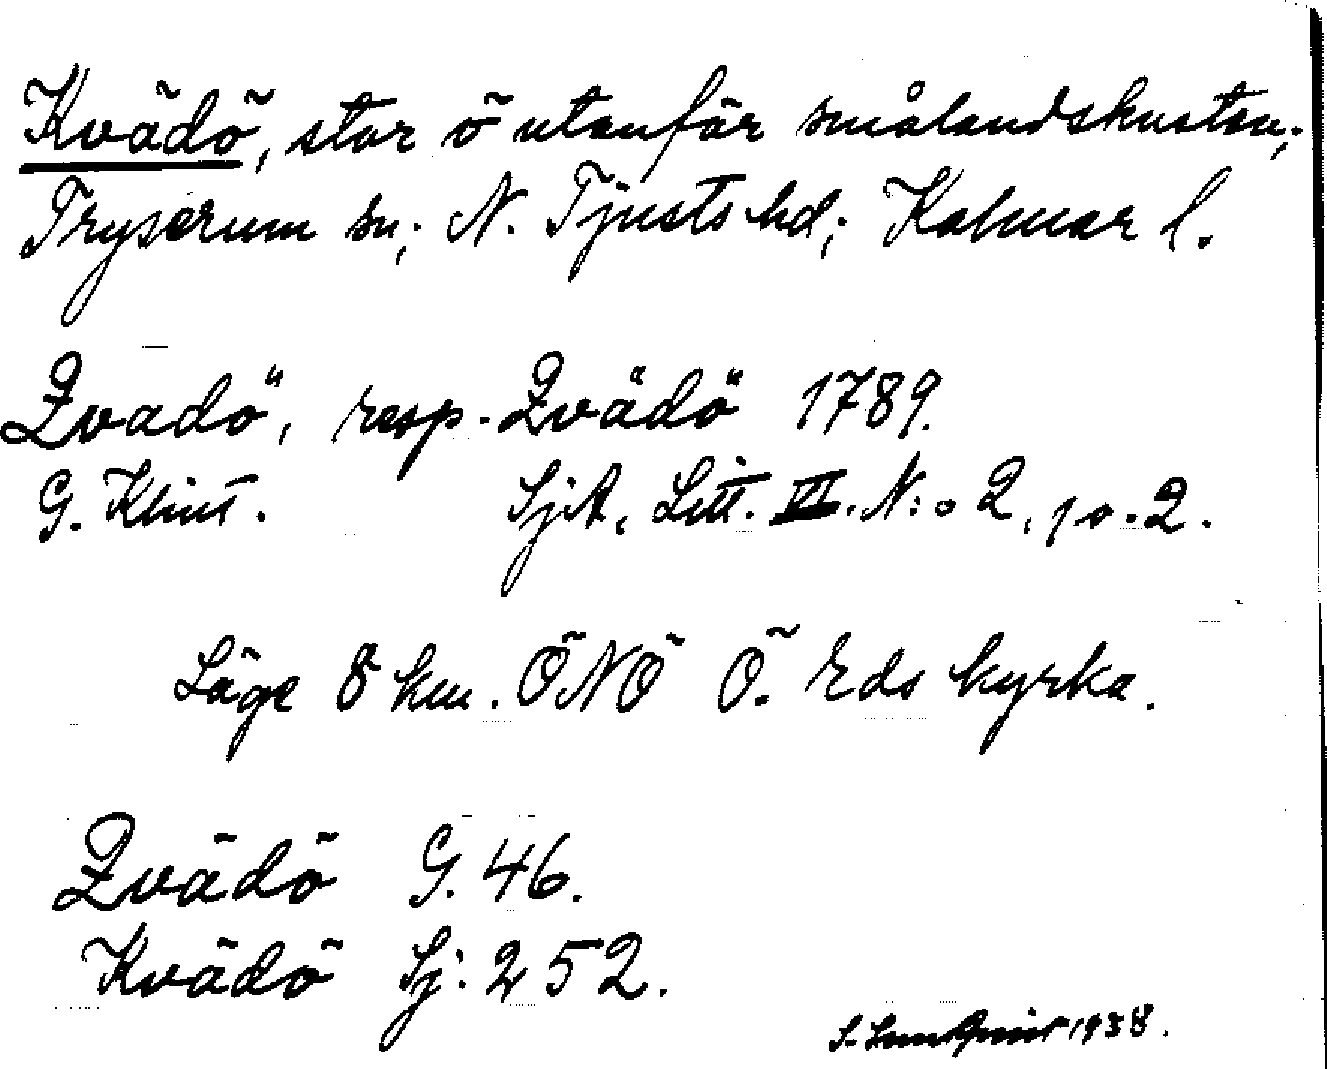 Kvädö, stor ö utanför smålandskusten;
Tryserum sn; N. Tjusts hd; Kalmar l.
Qvadö, resp. Qvädö 1789.
G. Klint. SjA, Litt. VI. N:o 2, p.2.
Läge 8 km. ÖNÖ Ö. Eds kyrka.
Qvädö G. 46.
Kvädö Sj. 252.
S. Lundqvist 1938.